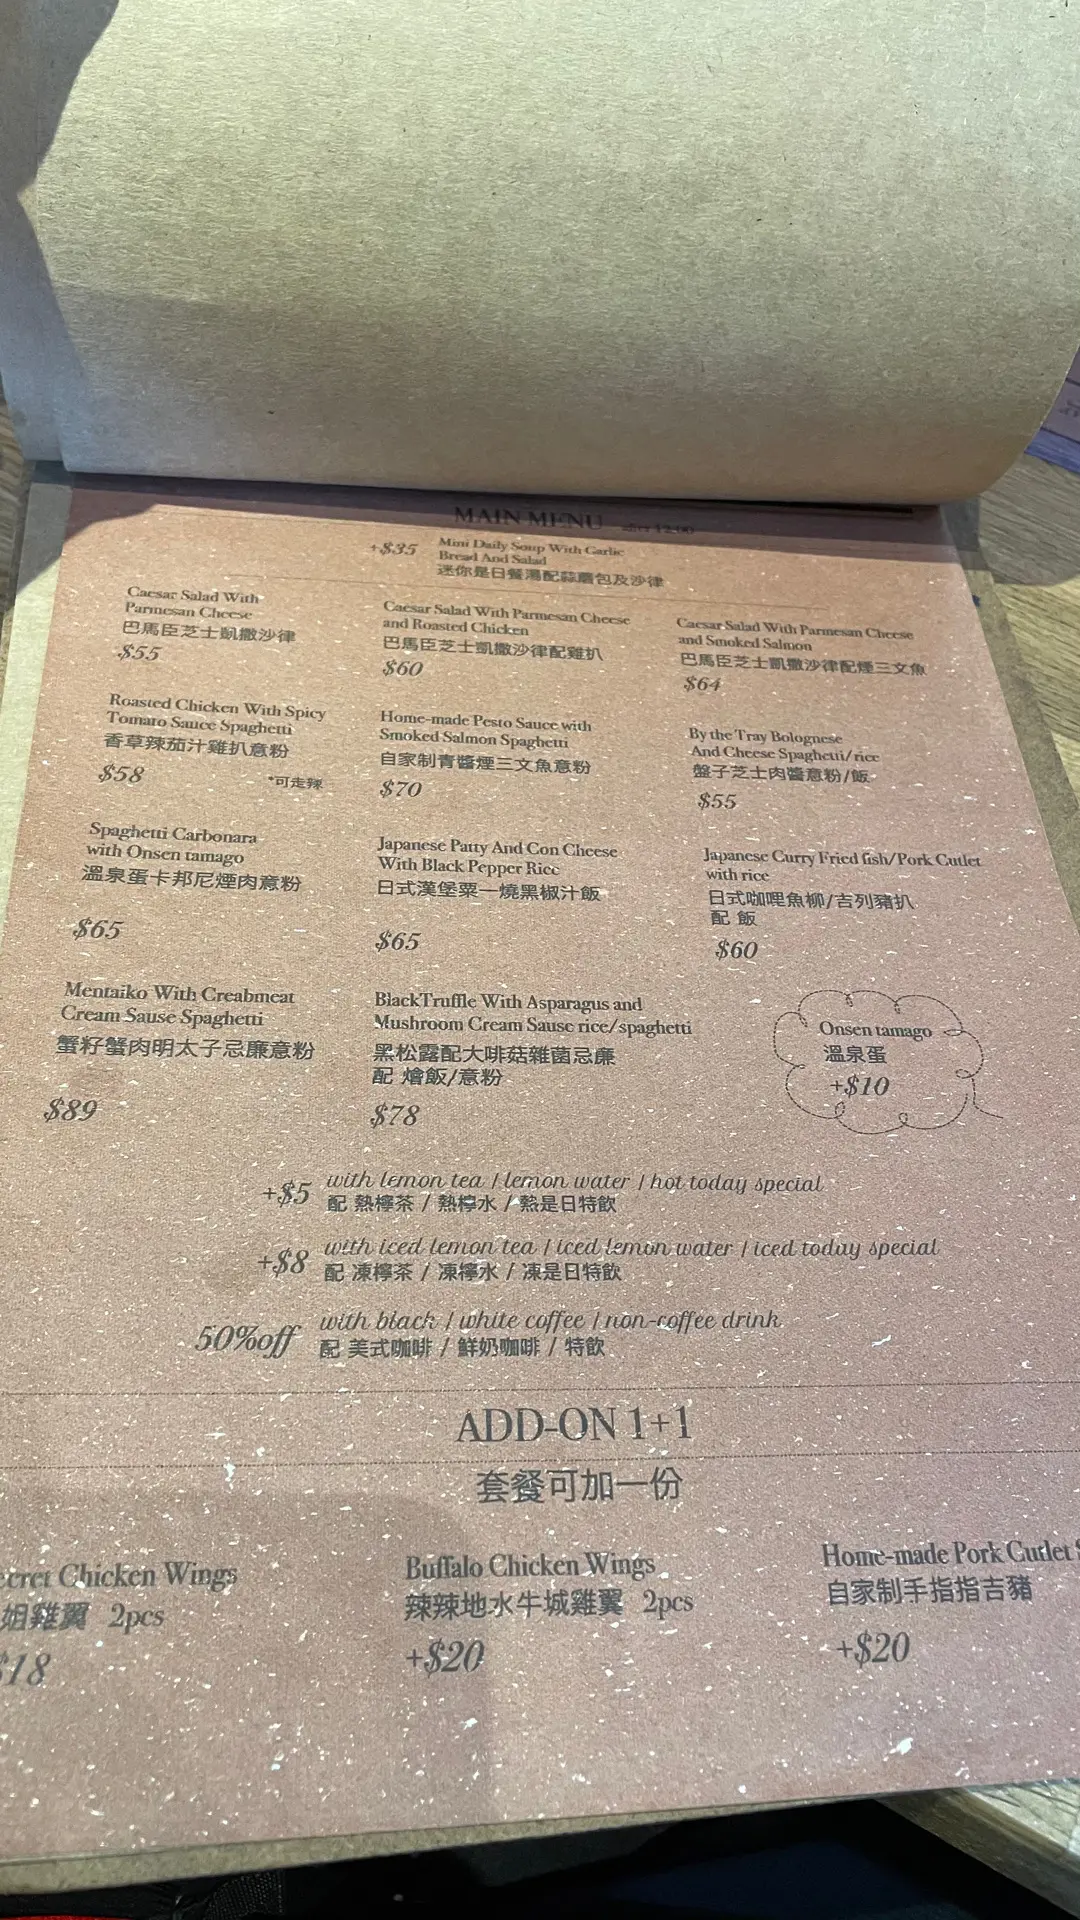 MAIN MENU after 12:00
+$35
Mini Daily Soup With Garlic
Bread And Salad
迷你是日餐湯配蒜蓉包及沙律
Caesar Salad With
Parmesan Cheese
巴馬臣芝士凱撒沙律
$55
Caesar Salad With Parmesan Cheese
and Roasted Chicken
巴馬臣芝士凱撒沙律配雞扒
$60
Caesar Salad With Parmesan Cheese
and Smoked Salmon
巴馬臣芝士凱撒沙律配煙三文魚
$64
Roasted Chicken With Spicy
Tomato Sauce Spaghetti
香草辣茄汁雞扒意粉
$58
*可走辣
Home-made Pesto Sauce with
Smoked Salmon Spaghetti
自家制青醬煙三文魚意粉
$70
By the Tray Bolognese
And Cheese Spaghetti/rice
盤子芝士肉醬意粉/飯
$55
Spaghetti Carbonara
with Onsen tamago
溫泉蛋卡邦尼煙肉意粉
$65
Japanese Patty And Con Cheese
With Black Pepper Rice
日式漢堡粟一燒黑椒汁飯
$65
Japanese Curry Fried fish/Pork Cutlet
with rice
日式咖哩魚柳/吉列豬扒
配 飯
$60
Mentaiko With Creabmeat
Cream Sause Spaghetti
蟹籽蟹肉明太子忌廉意粉
$89
BlackTruffle With Asparagus and
Mushroom Cream Sause rice/spaghetti
黑松露配大啡菇雜菌忌廉
配 燴飯/意粉
$78
Onsen tamago
溫泉蛋
+$10
+$5 with lemon tea / lemon water / hot today special
配 熱檸茶 / 熱檸水 / 熱是日特飲
+$8 with iced lemon tea / iced lemon water / iced today special
配 凍檸茶 / 凍檸水 / 凍是日特飲
50%off with black / white coffee / non-coffee drink
配 美式咖啡 / 鮮奶咖啡 / 特飲
ADD-ON 1+1
套餐可加一份
ecret Chicken Wings
姐雞翼 2pcs
$18
Buffalo Chicken Wings
辣辣地水牛城雞翼 2pcs
+$20
Home-made Pork Cutlet
自家制手指指吉豬
+$20